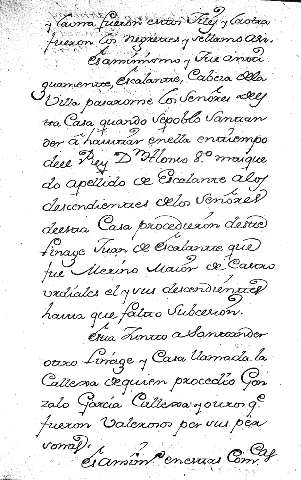 y la una fueron estos Files y la otra
fueron los negretes y se llamo asi.
Es asimismo y fue anti
guamente, Escalante, Cabeza de la
Villa pasaronse los Señores de
Casa quando se poblo Santan
der á havitar en ella en tiempo
de el Rey Dn Alonso 8.º mas que
do apellido de Escalante a los
descendientes de los Señores
de esta Casa procedieron de este
Linage Juan de Escalante que
fue Merino Maior de Castro
urdiales el y sus descendientes
hasta que faltó Subcesion.
Esta Junto a Santander
otro Linage y Casa llamada la
Callexa de quien procedió Gon
zalo Garcia Callexa y otros q.e
fueron Valerosos por sus per
sonas.
Es asim.º en estas Com.cas